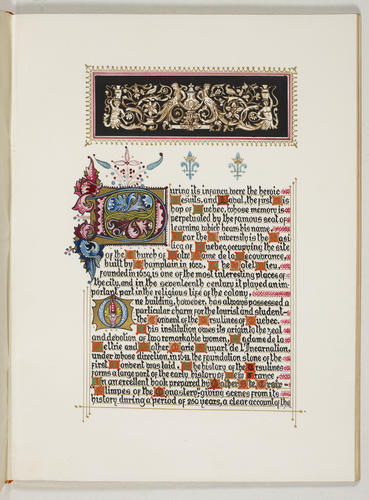 During its infancy, were the heroic
Jesuits, and Labal, the first Bis
hop of Quebec, whose memory is
perpetuated by the famous seat of
learning which bears his name.
Near the University is the Basi
lica of Quebec, occupying the site
of the Church of Notre Dame de Recouvrance,
built by Champlain in 1633. The Hotel Dieu,
founded in 1639 is one of the most interesting places of
the city, and in the seventeenth century it played an im-
portant part in the religious life of the colony.
One building, however, has always possessed a
particular charm for the tourist and student-
the Convent of the Ursulines of Quebec.
This institution owes its origin to the zeal
and devotion of two remarkable women, Madame de la
Peltrie and Mother Marie Guyart de l'Incarnation,
under whose direction, in 1641 the foundation stone of the
first Convent was laid. The history of the Ursulines
forms a large part of the early history of New France.
In an excellent book prepared by Mother Ste. Croix-
"Glimpses of the Monastery"-giving scenes from its
history during a period of 260 years, a clear account of the